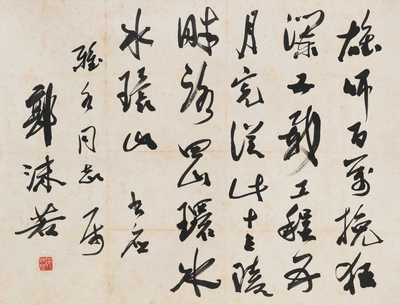 雄師百萬挽狂
瀾五載工程五
月完從此十三陵
畔路四山環水
水環山 書應
同志属
郭沫若